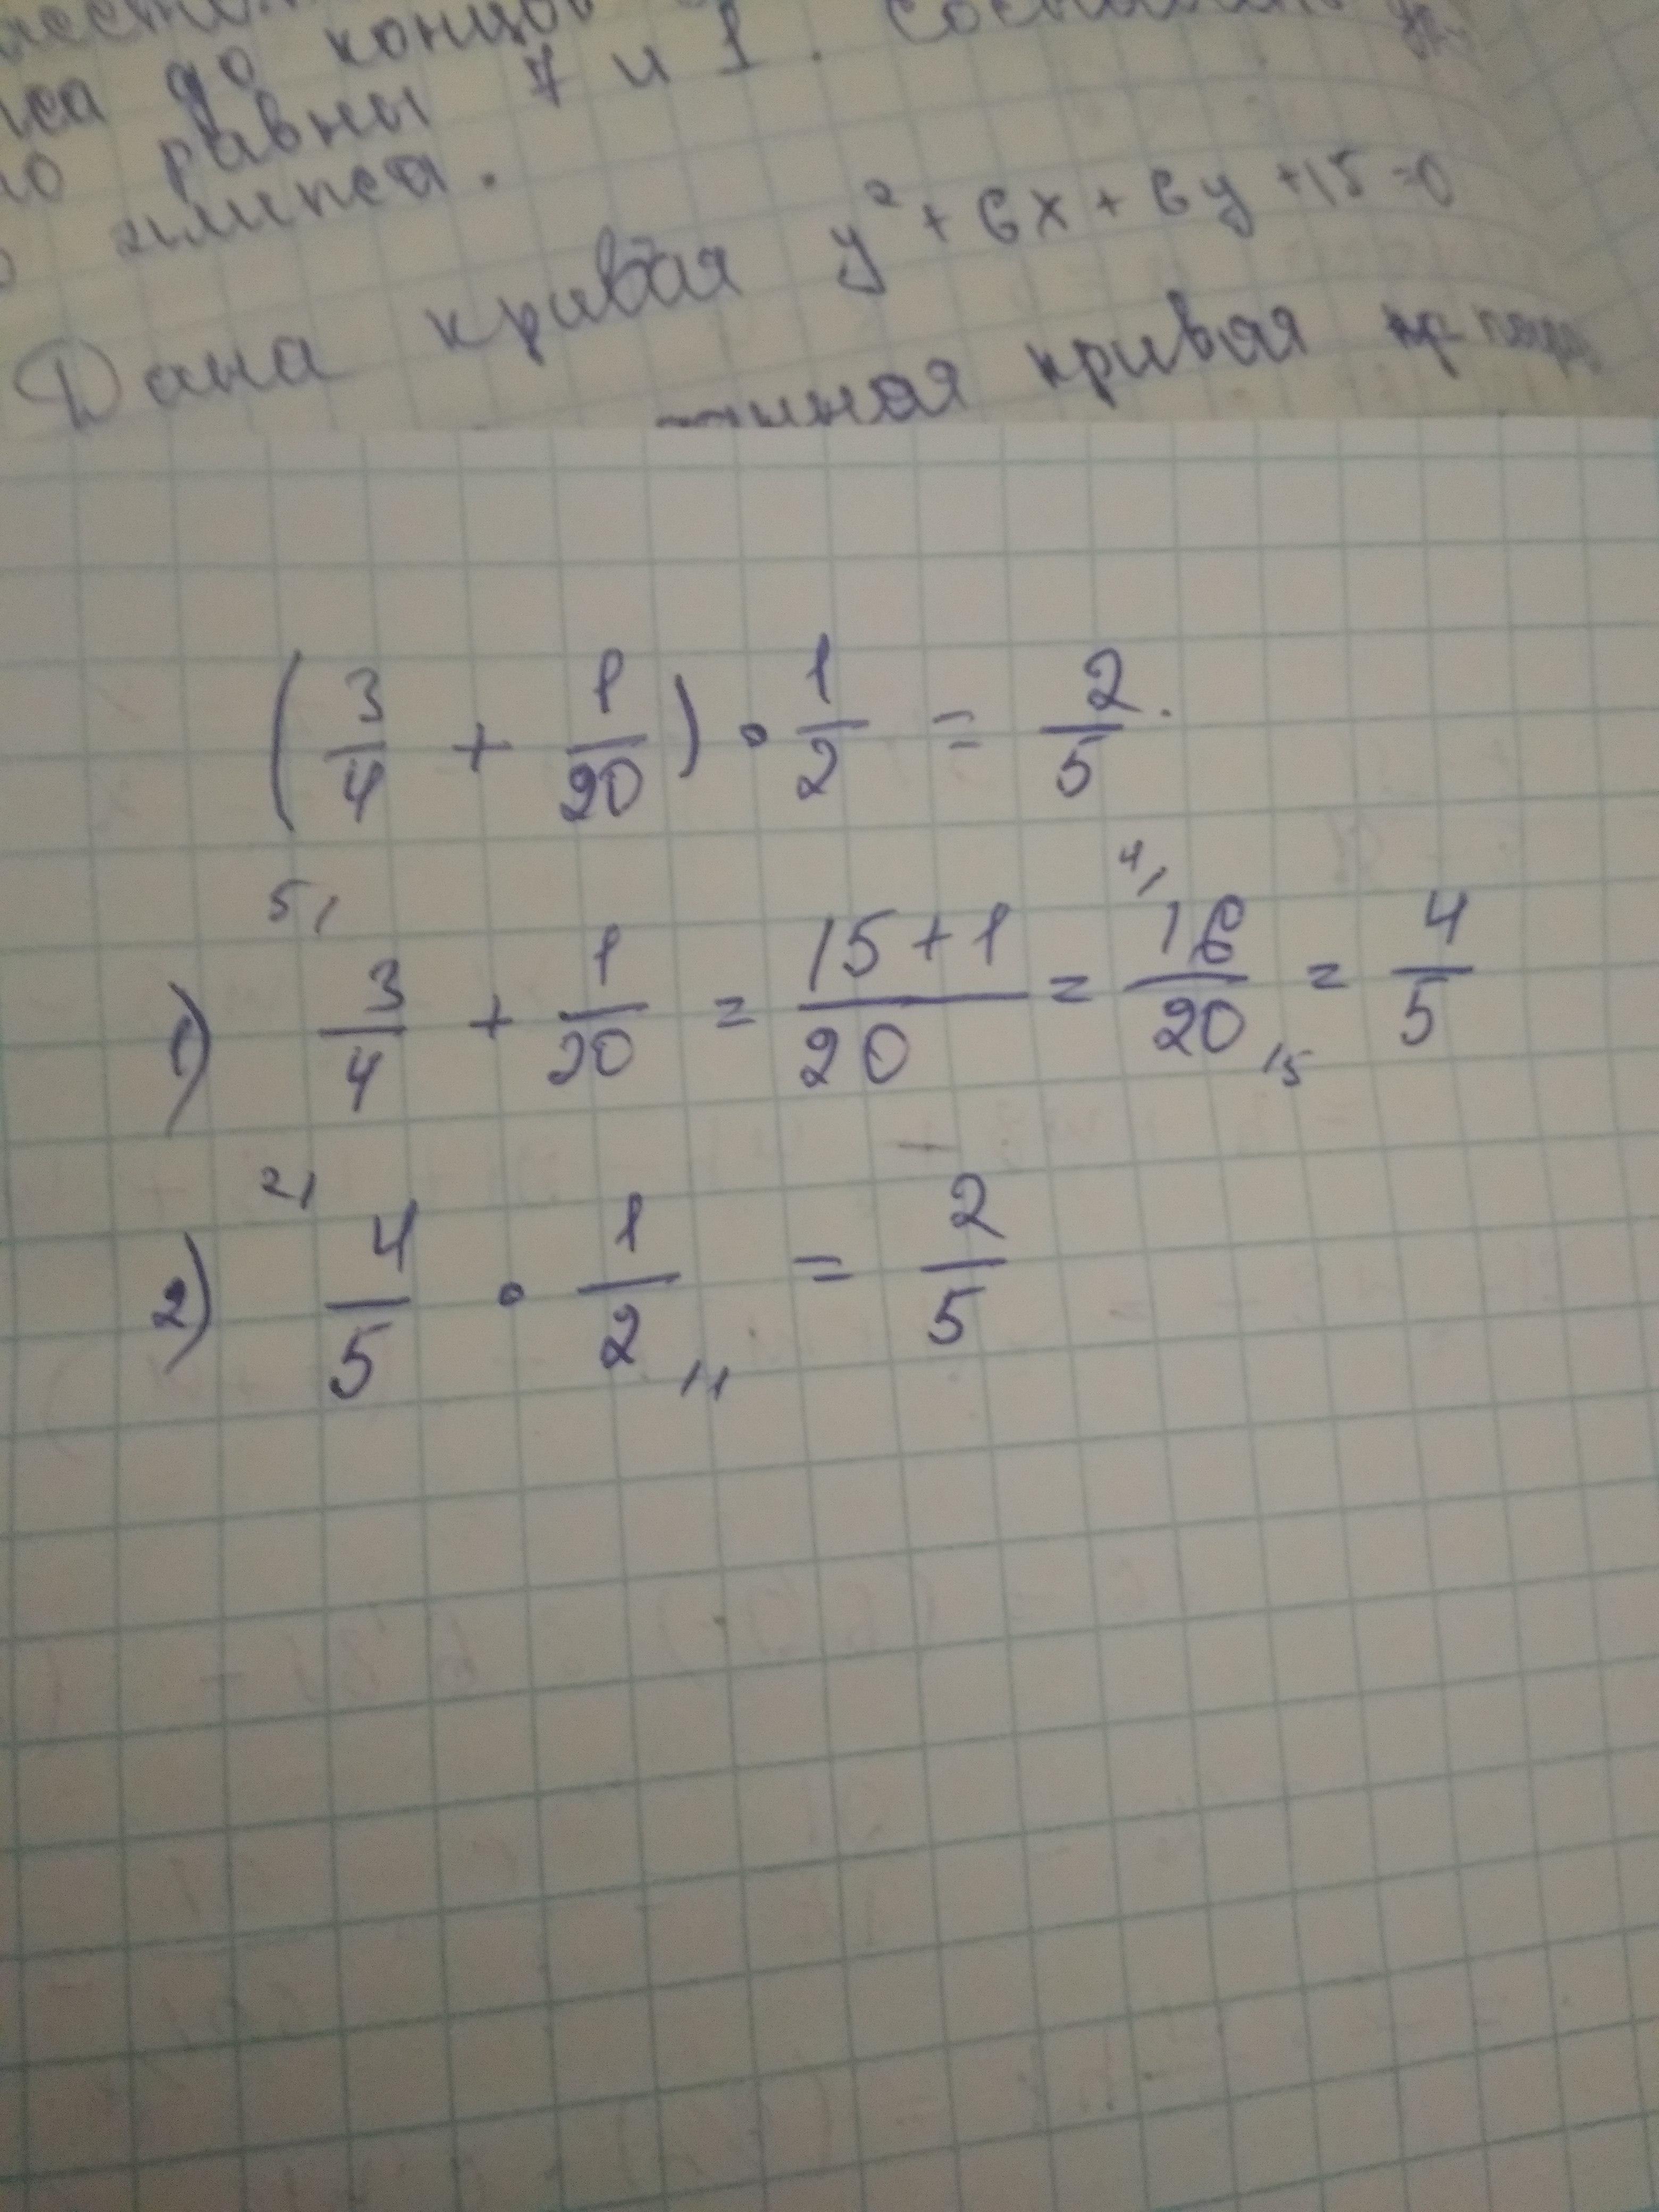 до концов
равны 7 и 1.
эллипса.
Дана кривая y² + 6x + 6y + 15 = 0
кривая
(3/4 + 1/20) • 1/2 = 2/5.
1) 3/4 ⁵⁾ + 1/20 = 15+1/20 = 16 ⁴⁾/20 ₎₅ = 4/5
2) 4 ²⁾/5 • 1/2 ₎₁ = 2/5